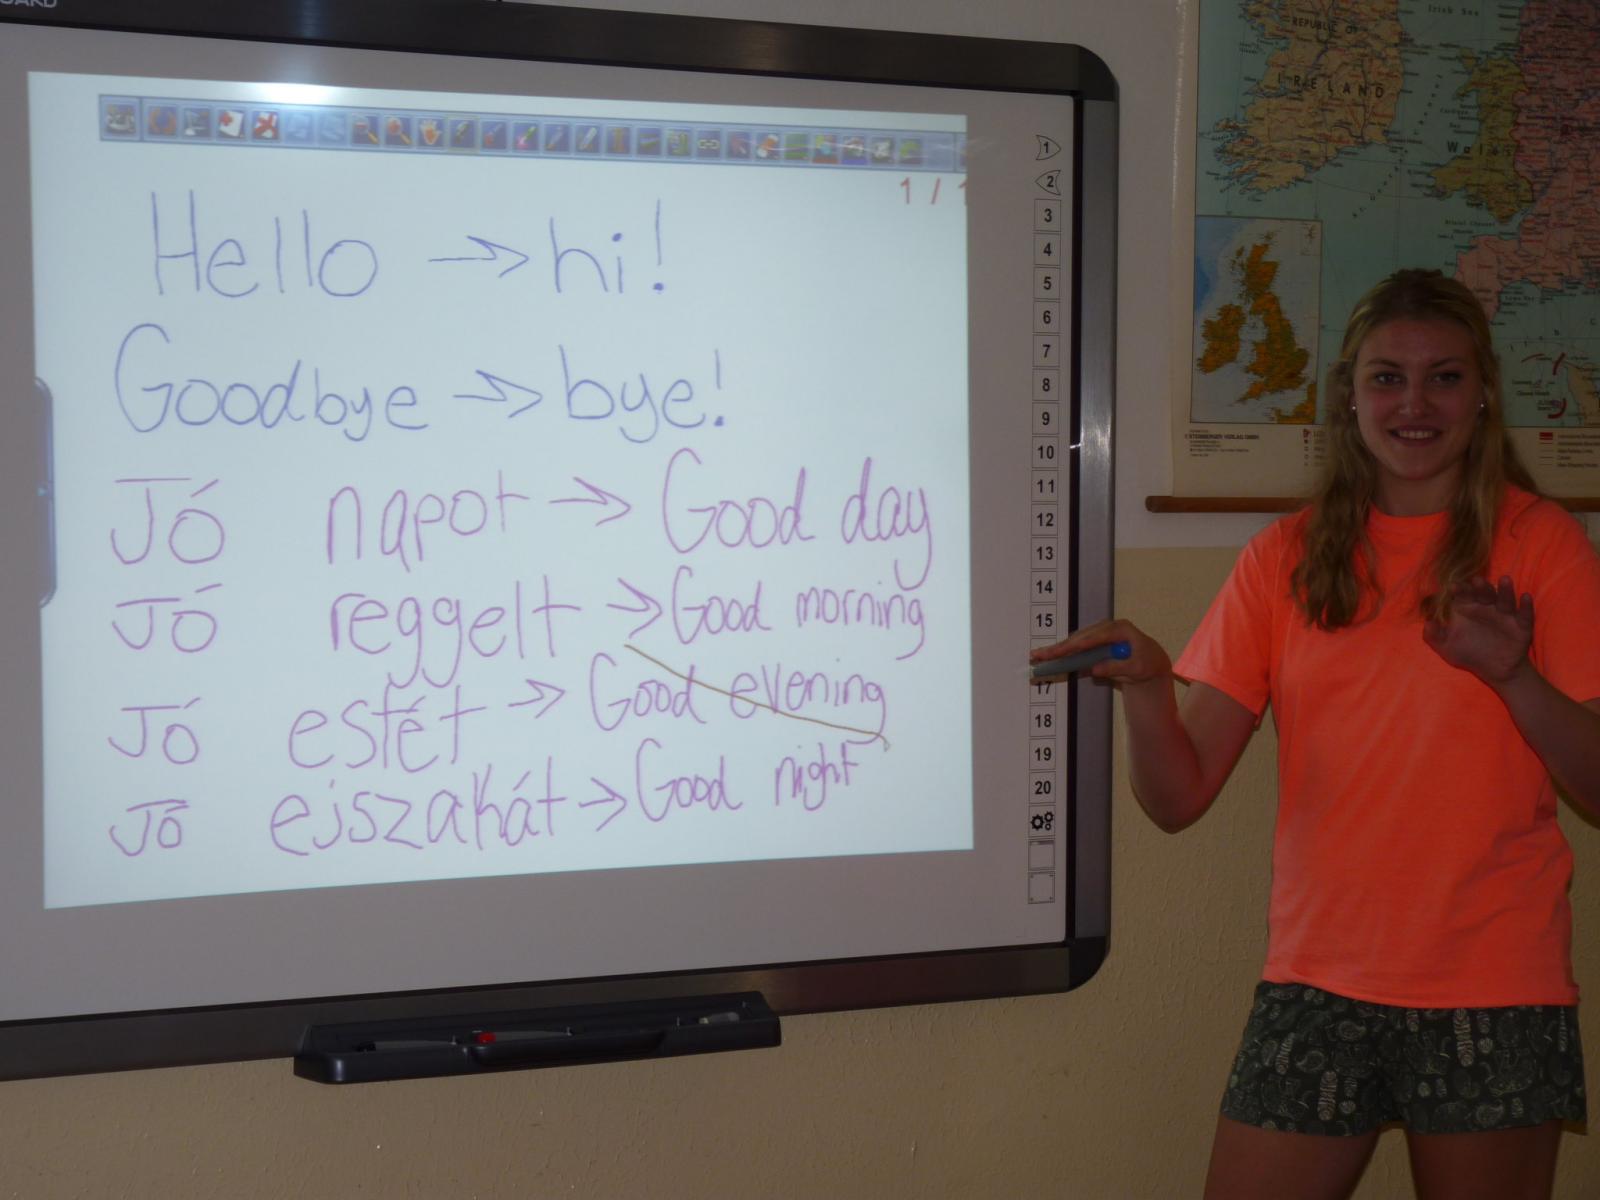 1 / 1
Hello → hi!
Goodbye → bye!
Jó napot → Good day
Jó reggelt → Good morning
Jó estét → Good evening
Jó ejszakát → Good night
1
2
3
4
5
6
7
8
9
10
11
12
13
14
15
17
18
19
20
Irish Sea
REPUBLIC OF
IRELAND
Wales